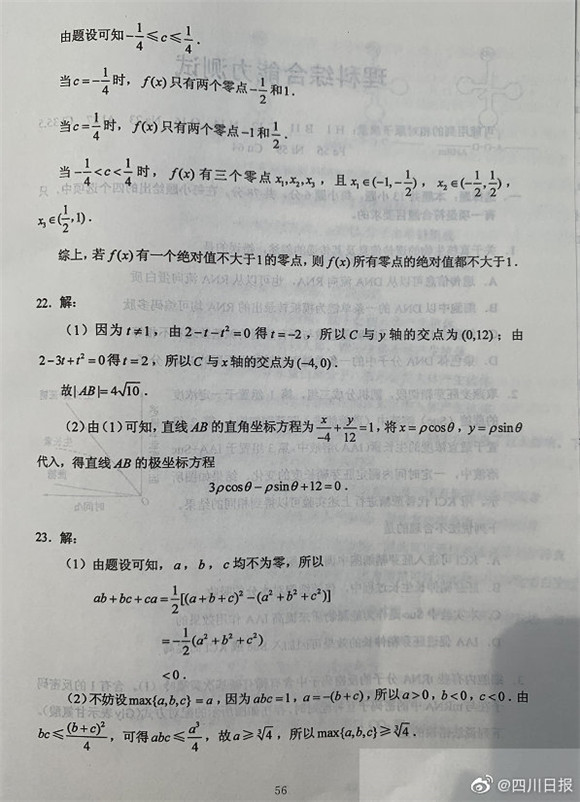 由题设可知 $-\frac{1}{4}≤c≤\frac{1}{4}$.
当 $c=-\frac{1}{4}$ 时，$f(x)$ 只有两个零点 $-\frac{1}{2}$ 和1.
当 $c=\frac{1}{4}$ 时，$f(x)$ 只有两个零点 -1 和 $\frac{1}{2}$.
当 $-\frac{1}{4}<c<\frac{1}{4}$ 时，$f(x)$ 有三个零点 $x_1,x_2,x_3$，且 $x_1∈(-1,-\frac{1}{2})$，$x_2∈(-\frac{1}{2},\frac{1}{2})$，
$x_3∈(\frac{1}{2},1)$.
综上，若 $f(x)$ 有一个绝对值不大于1的零点，则 $f(x)$ 所有零点的绝对值都不大于1.
22. 解：
（1）因为 $t≠1$，由 $2-t-t^2=0$ 得 $t=-2$，所以 C 与 y 轴的交点为 (0,12)；由
$2-3t+t^2=0$ 得 $t=2$，所以 C 与 x 轴的交点为 (-4,0).
故 $|AB|=4\sqrt{10}$.
（2）由（1）可知，直线 AB 的直角坐标方程为 $\frac{x}{-4}+\frac{y}{12}=1$，将 $x=ρ\cosθ$，$y=ρ\sinθ$
代入，得直线 AB 的极坐标方程
$3ρ\cosθ-ρ\sinθ+12=0$.
23. 解：
（1）由题设可知，a，b，c 均不为零，所以
$ab+bc+ca=\frac{1}{2}[(a+b+c)^2-(a^2+b^2+c^2)]$
$=-\frac{1}{2}(a^2+b^2+c^2)$
$<0$.
（2）不妨设 $\max\{a,b,c\}=a$，因为 $abc=1$，$a=-(b+c)$，所以 $a>0$，$b<0$，$c<0$. 由
$bc≤\frac{(b+c)^2}{4}$，可得 $abc≤\frac{a^3}{4}$，故 $a≥\sqrt[3]{4}$，所以 $\max\{a,b,c\}≥\sqrt[3]{4}$.
56
@四川日报